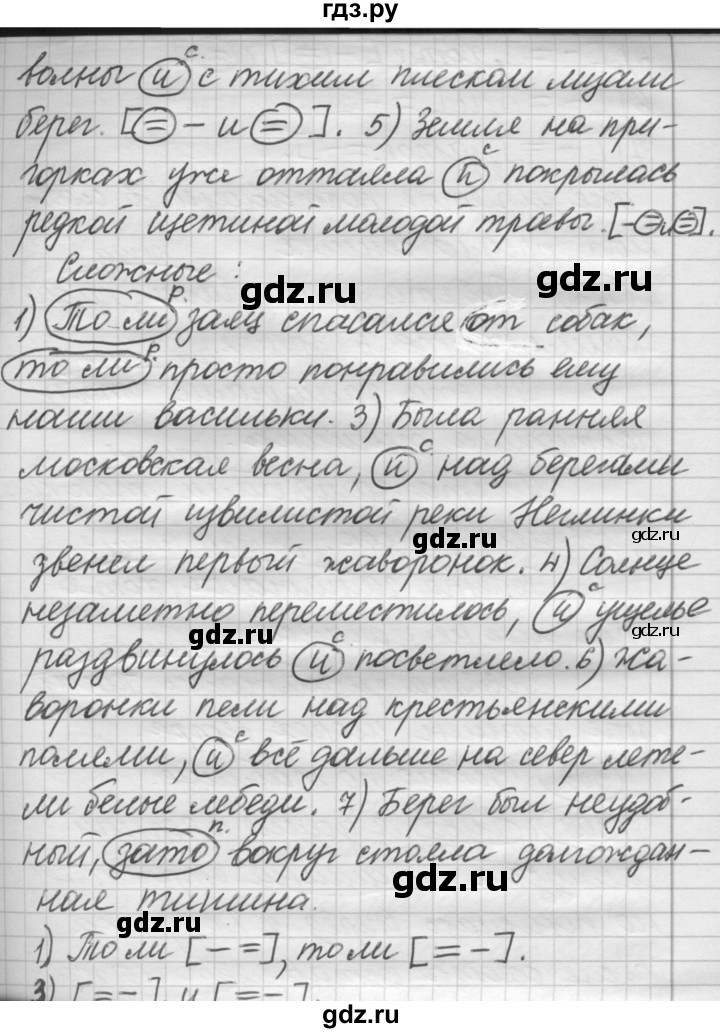 гдз.ру
волны (и)ᶜ с тихим плеском лизали
берег. [(=) - и (=)]. 5) Земля на при-
горках уже оттаяла (и)ᶜ покрылась
редкой щетиной молодой травы. [-(=)и(=)].
Сложные:
1) (То ли)ᵖ· заяц спасался от собак,
(то ли)ᵖ· просто понравились ему
наши васильки. 3) Была ранняя
московская весна, (и)ᶜ над берегами
чистой извилистой реки Неглинки
звенел первый жаворонок. 4) Солнце
незаметно переместилось, (и)ᶜ ущелье
раздвинулось (и)ᶜ посветлело. 6) Жа-
воронки пели над крестьянскими
полями, (и)ᶜ всё дальше на север лете-
ли белые лебеди. 7) Берег был неудоб-
ный, (зато)ⁿ· вокруг стояла долгождан-
ная тишина.
1) То ли [- =], то ли [= -].
3) [= -] и [= -].
gdz.ru
gdz.ru
gdz.ru
gdz.ru
gdz.ru
gdz.ru
gdz.ru
gdz.ru
gdz.ru
gdz.ru
gdz.ru
gdz.ru